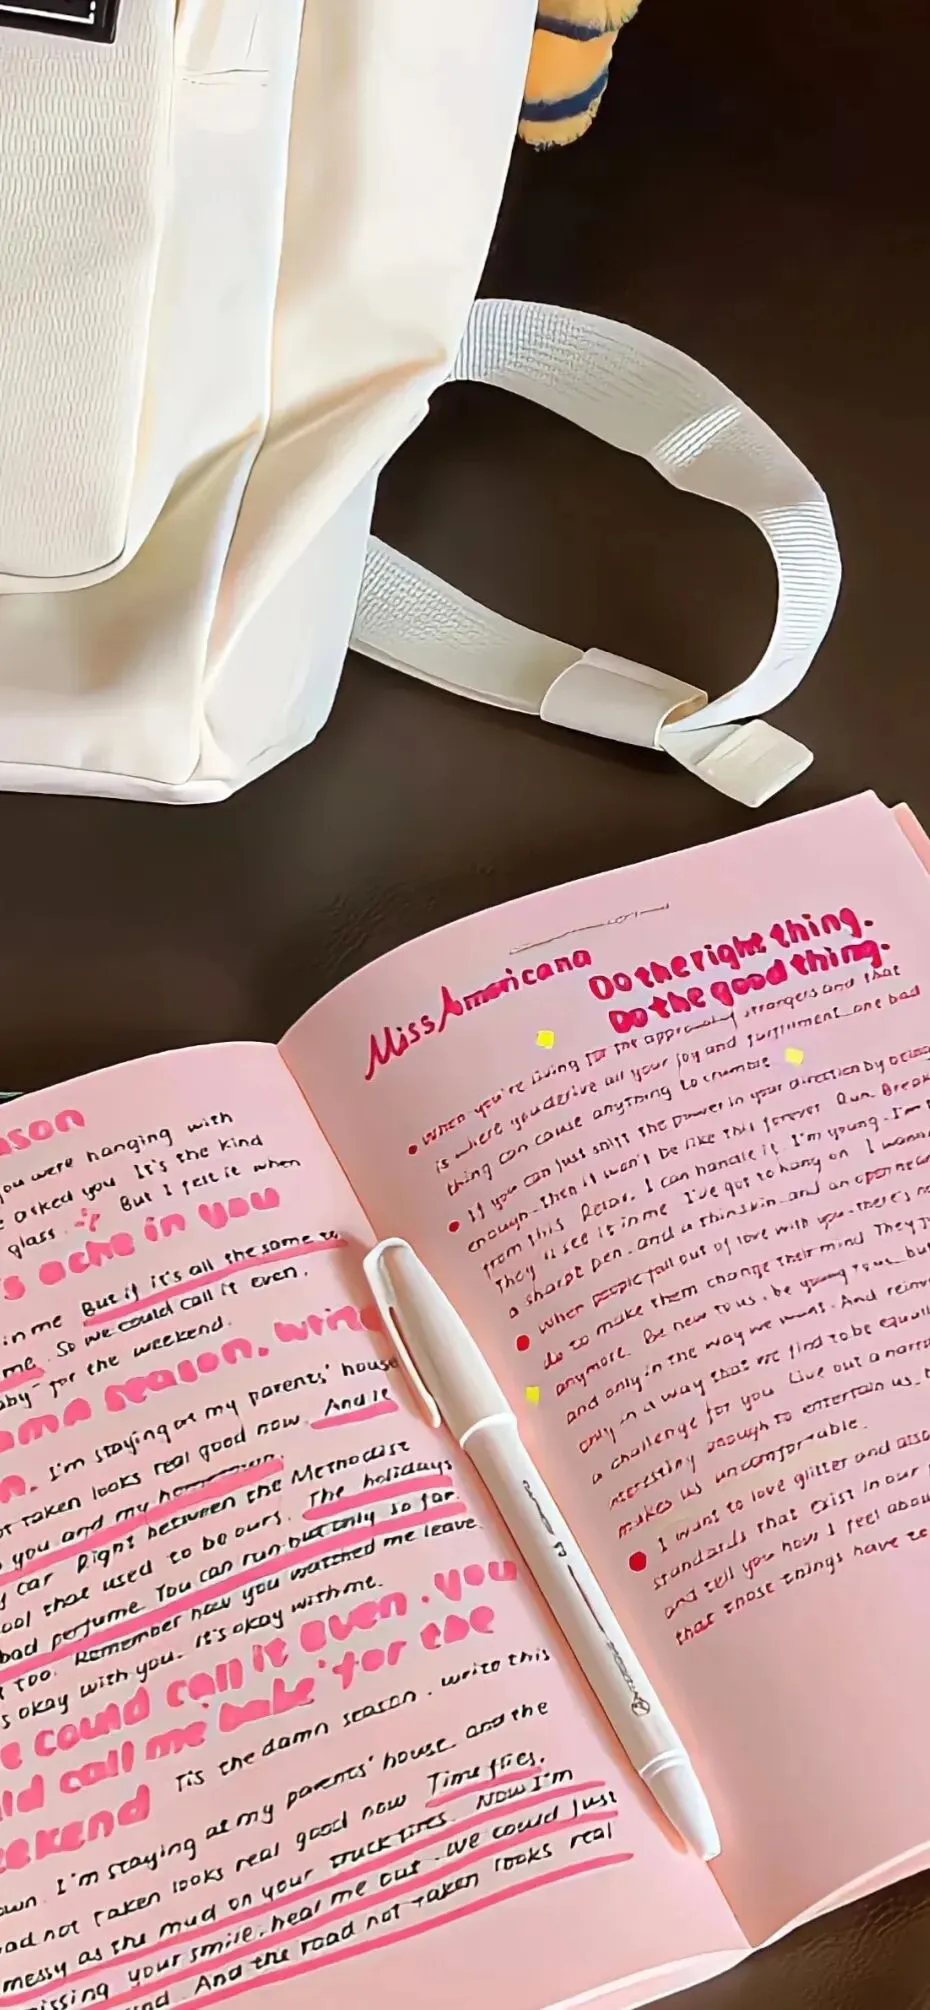 ason
you were hanging with
e asked you It's the kind
glass. But I felt it when
s ache in you
in me But if it's all the same to
me. So we could call it even.
for the weekend.
damn season. write
I'm staying at my parents' house
taken looks real good now. And it
you and my hometown.
car Right between the Methodist
ool that used to be ours. The holidays
bad perfume You can run but only so far.
too. Remember how you watched me leave.
s okay with you. It's okay with me.
e could call it even. you
ld call me 'babe' for the
eekend Tis the damn season. write this
own. I'm staying at my parents' house and the
ad not taken looks real good now Time flies.
messy as the mud on your truck tires. Now I'm
issing your smile. hear me out. we could just
And the road not taken looks real
Miss Americana
Do the right thing.
Do the good thing.
When you're living for the approval strangers and that
is where you derive all your joy and fulfillment one bad
thing can cause anything to crumble
If you can just shift the power in your direction by being
enough then it won't be like this forever Run. Break
from this Relax. I can handle it. I'm young. I'm
They'll see it in me I've got to hang on I want
a sharp pen and a thin skin and an open
When people fall out of love with you there's
do to make them change their mind They
anymore Be new to us, be young to us, bu
and only in the way we want. And reinv
only in a way that we find to be equall
a challenge for you Live out a narra
enough to entertain us
makes us uncomfortable.
I want to love glitter and also
standards that exist in our
and tell you how I feel abou
that those things have to